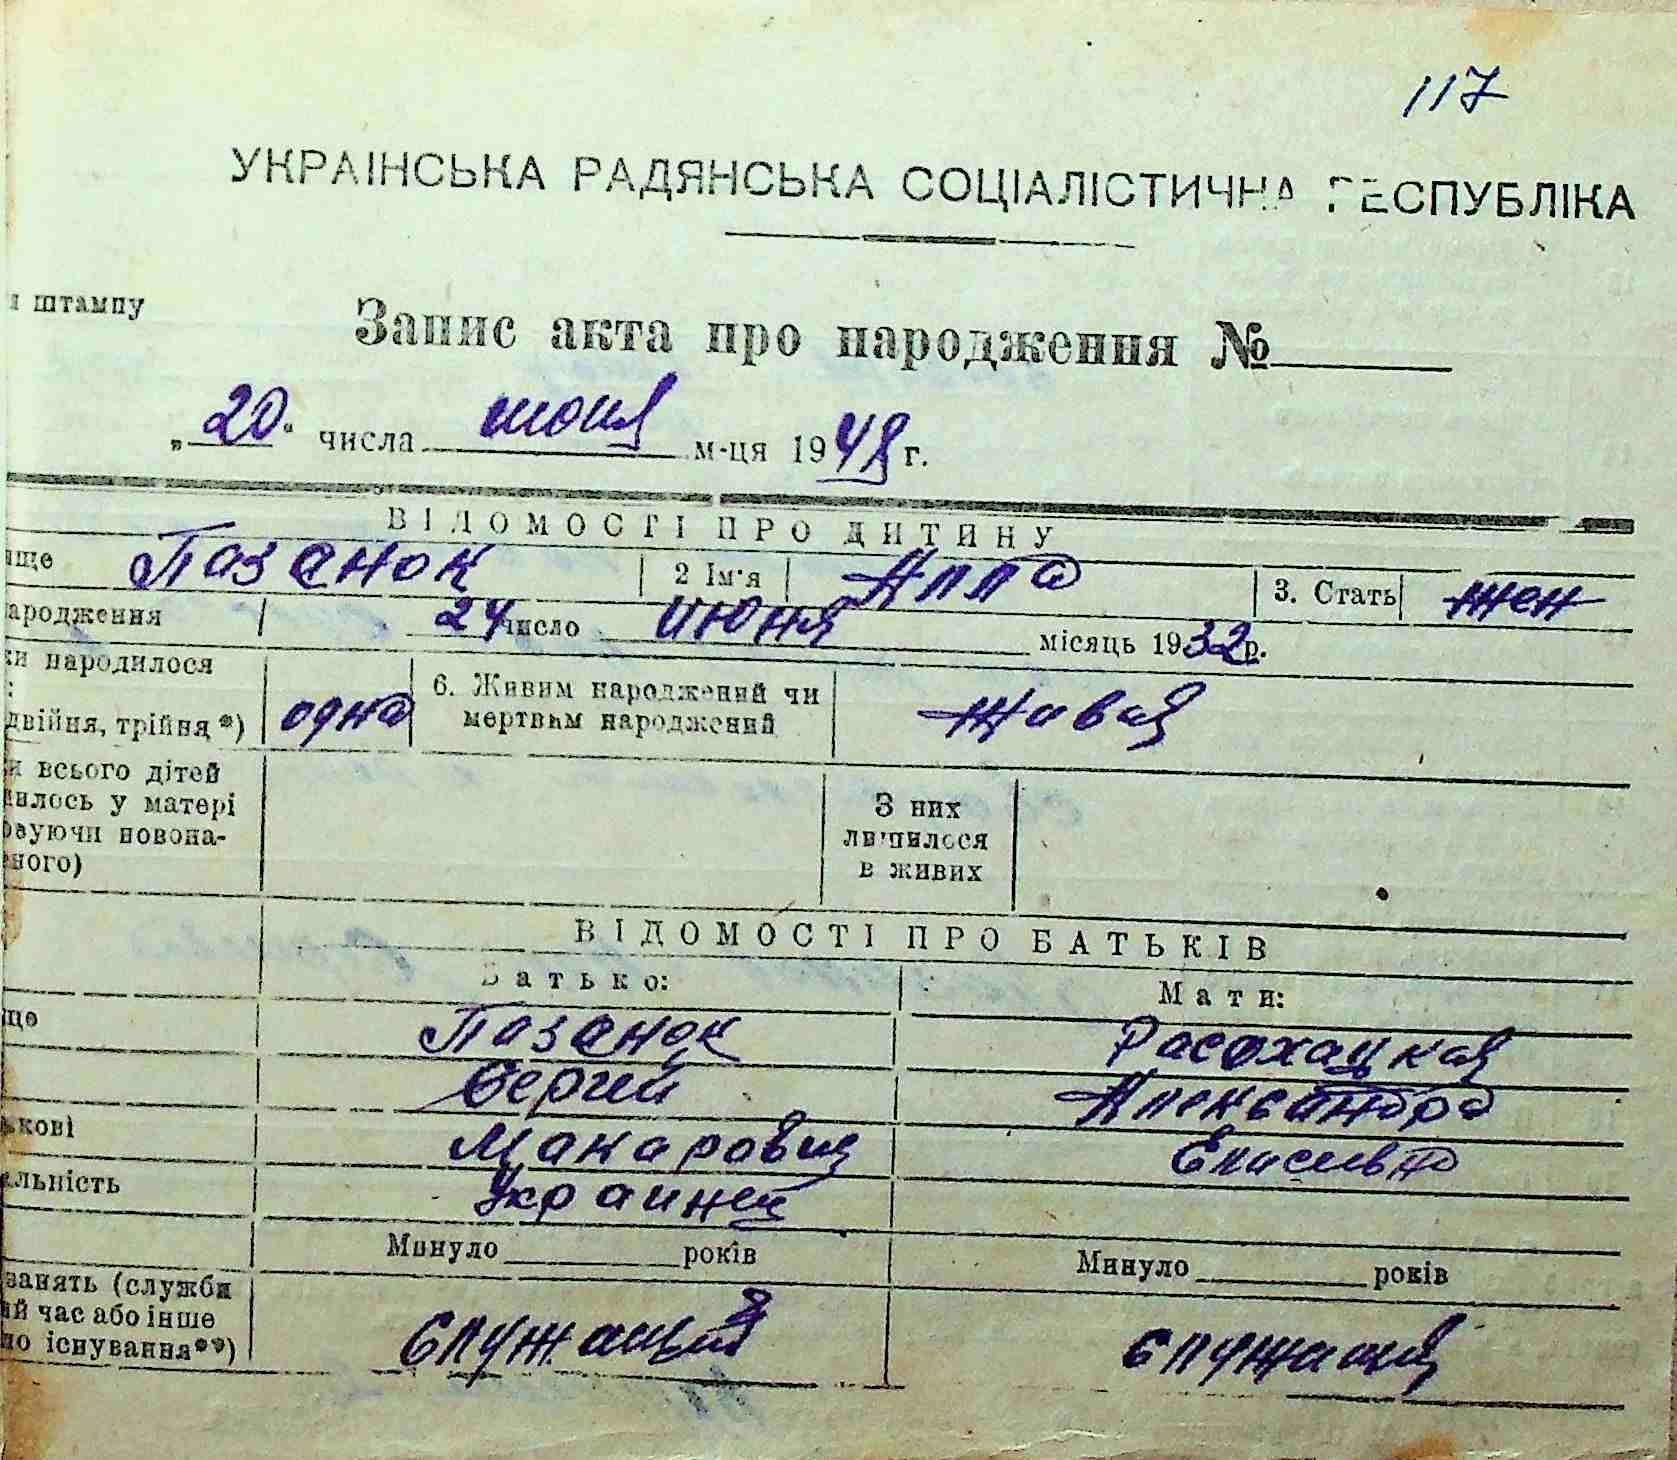 117
УКРАІНСЬКА РАДЯНСЬКА СОЦІАЛІСТИЧНА РЕСПУБЛІКА
я штампу
Запис акта про народження №
„20“ числа июня м-ця 1948 г.
ВІДОМОСТІ ПРО ДИТИНУ
ище Пазанок 2 Ім'я Алла 3. Стать жен
ародження 24 число июня місяць 1932 р.
ки народилося
:
двійня, трійня*) одна 6. Живим народжений чи мертвим народжений живая
и всього дітей
илось у матері
овуючи новона-
еного)
З них лишилося в живих
ВІДОМОСТІ ПРО БАТЬКІВ
Батько: Мати:
ще Пазанок Расохацкая
Сергий Александра
ькові Макарович Еласевна
альність Украинец
Минуло років Минуло років
занять (служби
ий час або інше
ло існування**) служащий служащая